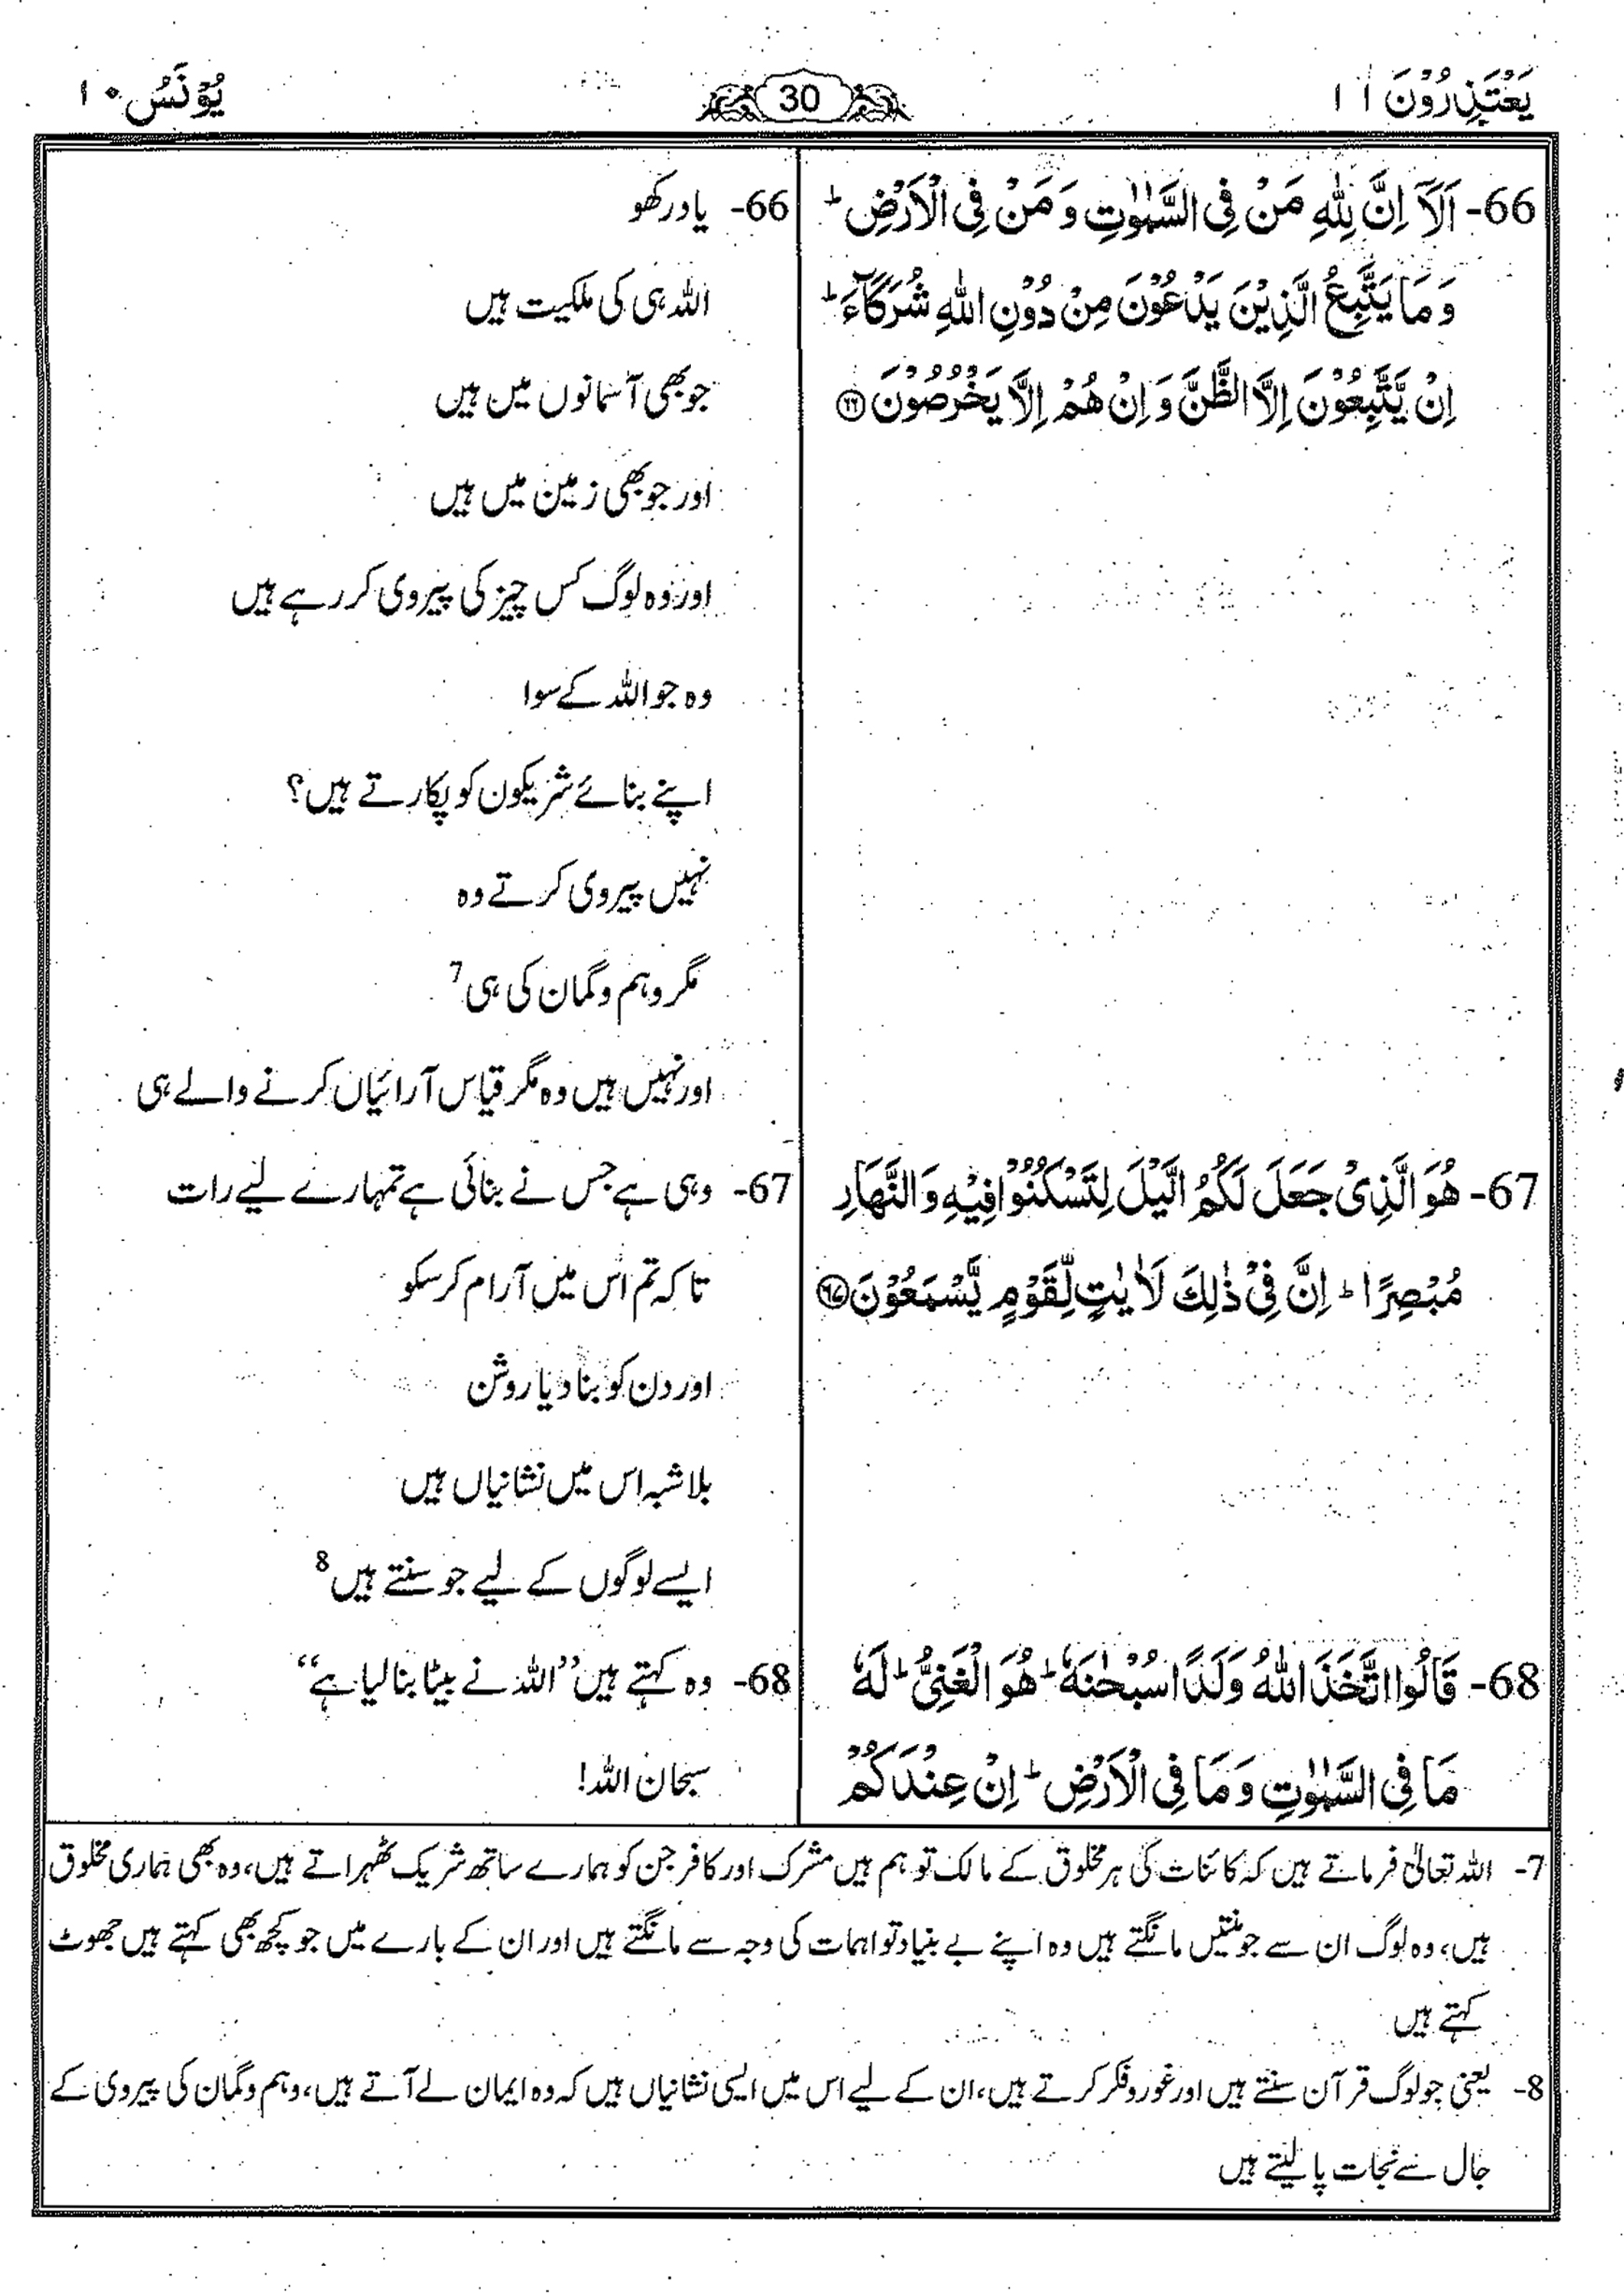 یَعْتَذِرُوْنَ ۱۱
30
یُوْنُس ۱۰
66- اَلَاۤ اِنَّ لِلّٰهِ مَنْ فِی السَّمٰوٰتِ وَ مَنْ فِی الْاَرْضِ ؕ
وَ مَا یَتَّبِعُ الَّذِیْنَ یَدْعُوْنَ مِنْ دُوْنِ اللّٰهِ شُرَكَآءَ ؕ
اِنْ یَّتَّبِعُوْنَ اِلَّا الظَّنَّ وَ اِنْ هُمْ اِلَّا یَخْرُصُوْنَ ﴿۶۶﴾
67- هُوَ الَّذِیْ جَعَلَ لَكُمُ الَّیْلَ لِتَسْكُنُوْا فِیْهِ وَ النَّهَارَ
مُبْصِرًا ؕ اِنَّ فِیْ ذٰلِكَ لَاٰیٰتٍ لِّقَوْمٍ یَّسْمَعُوْنَ ﴿۶۷﴾
68- قَالُوا اتَّخَذَ اللّٰهُ وَلَدًا سُبْحٰنَهٗ ؕ هُوَ الْغَنِیُّ ؕ لَهٗ
مَا فِی السَّمٰوٰتِ وَ مَا فِی الْاَرْضِ ؕ اِنْ عِنْدَكُمْ
66- یاد رکھو
اللہ ہی کی ملکیت ہیں
جو بھی آسمانوں میں ہیں
اور جو بھی زمین میں ہیں
اور وہ لوگ کس چیز کی پیروی کر رہے ہیں
وہ جو اللہ کے سوا
اپنے بنائے شریکون کو پکارتے ہیں؟
نہیں پیروی کرتے وہ
مگر وہم و گمان کی ہی 7
اور نہیں ہیں وہ مگر قیاس آرائیاں کرنے والے ہی
67- وہی ہے جس نے بنائی ہے تمہارے لیے رات
تا کہ تم اس میں آرام کر سکو
اور دن کو بنا دیا روشن
بلا شبہ اس میں نشانیاں ہیں
ایسے لوگوں کے لیے جو سنتے ہیں 8
68- وہ کہتے ہیں ”اللہ نے بیٹا بنا لیا ہے“
سبحان اللہ!
7- اللہ تعالیٰ فرماتے ہیں کہ کائنات کی ہر مخلوق کے مالک تو ہم ہیں مشرک اور کافر جن کو ہمارے ساتھ شریک ٹھہراتے ہیں، وہ بھی ہماری مخلوق
ہیں، وہ لوگ ان سے جو منتیں مانگتے ہیں وہ اپنے بے بنیاد تواہمات کی وجہ سے مانگتے ہیں اور ان کے بارے میں جو کچھ بھی کہتے ہیں جھوٹ
کہتے ہیں
8- یعنی جو لوگ قرآن سنتے ہیں اور غور و فکر کرتے ہیں، ان کے لیے اس میں ایسی نشانیاں ہیں کہ وہ ایمان لے آتے ہیں، وہم و گمان کی پیروی کے
جال سے نجات پا لیتے ہیں